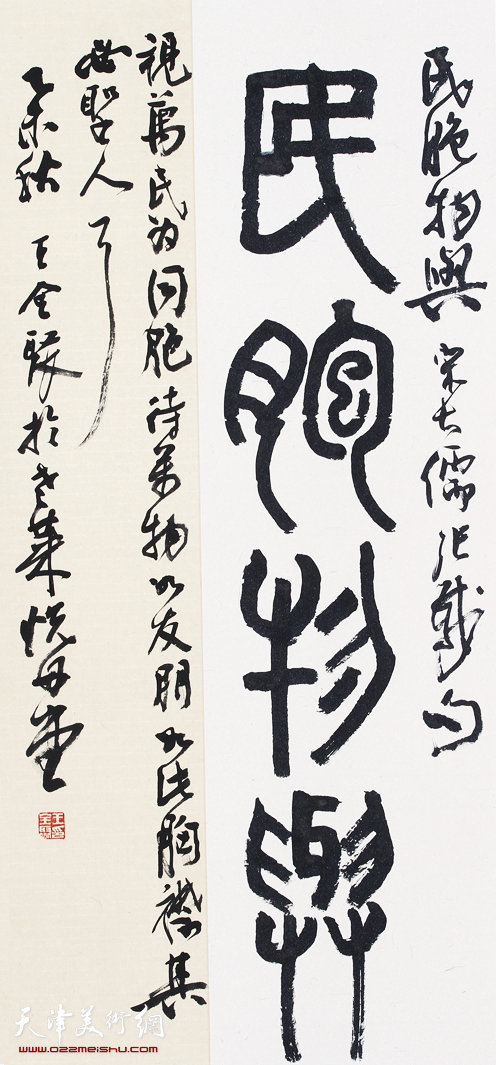 民胞物與 宋大儒張載句
民胞物與
視萬民為同胞待萬物如友朋如此胸襟其
必聖人乎
乙未秋 王全聚於老萊悅母堂
天津美術網
www.022meishu.com